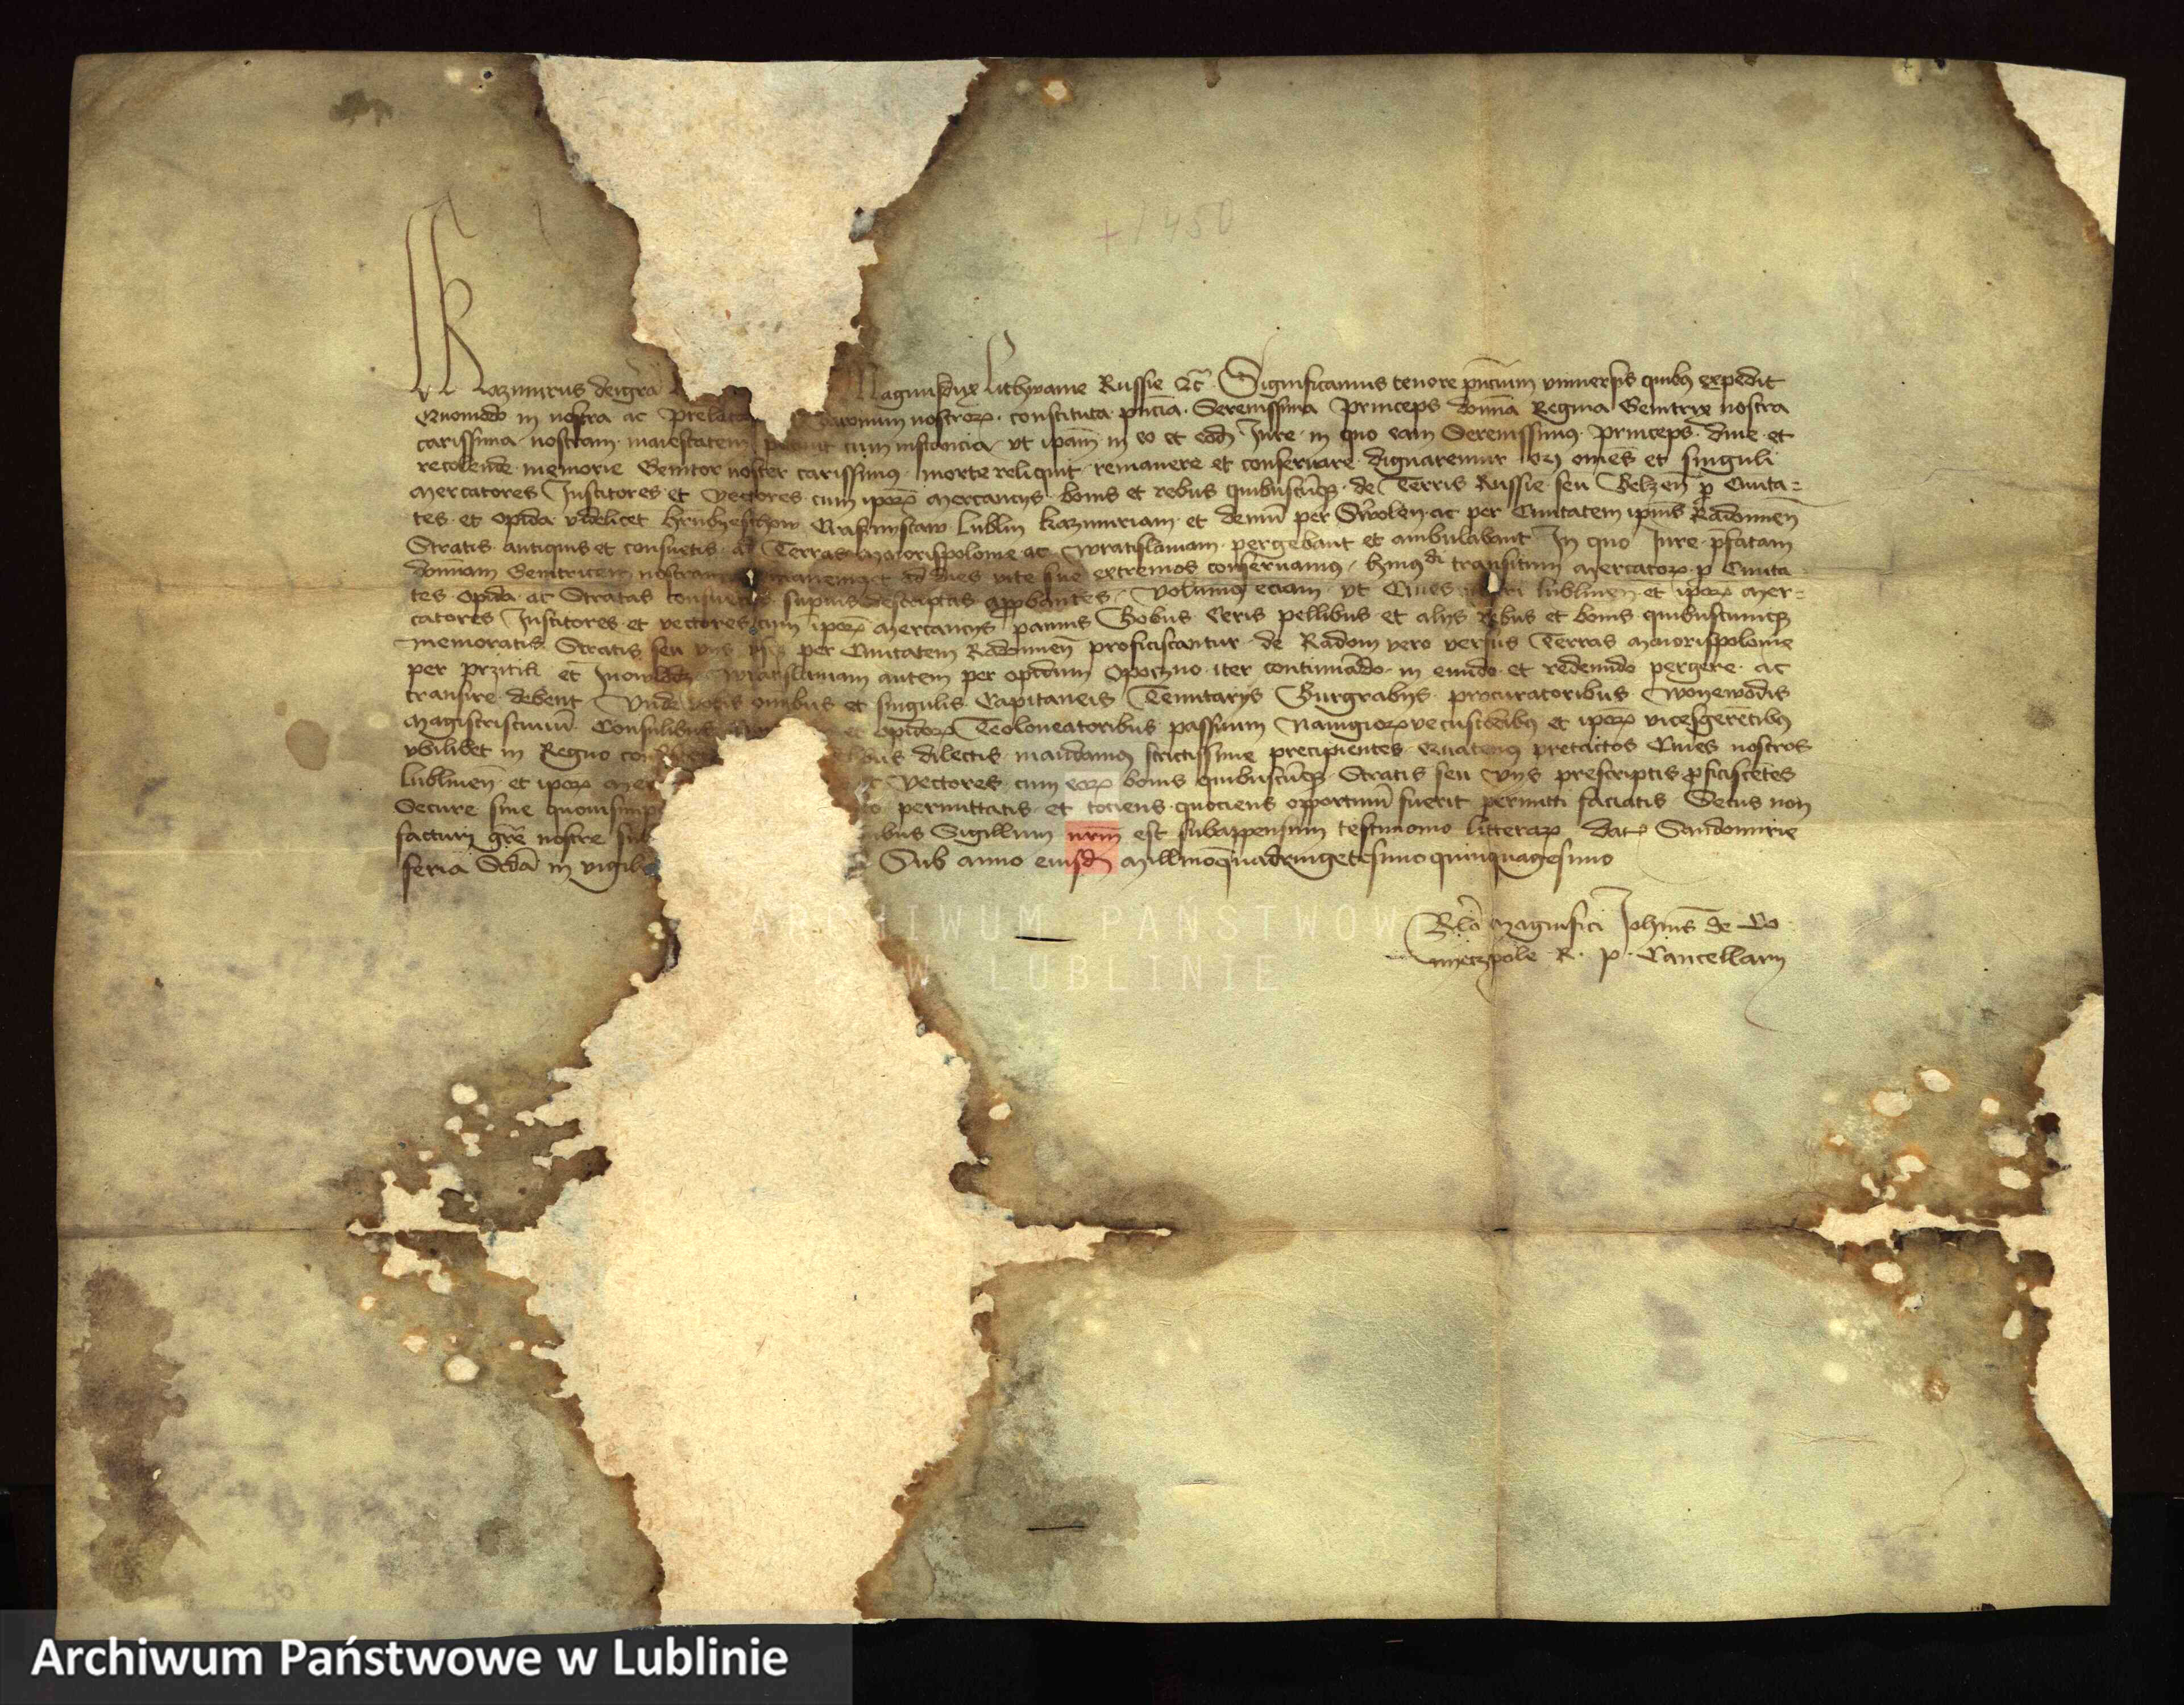 +1450
Kazimirus dei gra Magnus dux Lithwanie Russie etc. Significamus tenore pncium vniuersis quibus expedit
Quomodo in nostra ac Prelatorum Baronum nostrorum constituta pncia Serenissima Princeps domina Regina Genitrix nostra
carissima nostram maiestatem petiuit cum instancia vt ipam in eo et eodem Jure in quo eam Serenissimus Princeps diue et
recolende memorie Genitor noster carissimus morte reliquit remanere et conseruare dignaremur omes et singuli
Mercatores Institores et Vectores cum ipor Mercancys bonis et rebus quibuscunque de Terris Russie seu Belzen per Ciuita=
tes et opida videlicet Hrubyeschow Crasnystaw Lublin Kazimiriam et demum per Swolen ac per Ciuitatem ipius Radomien
Stratis antiquis et consuetis ad Terras Maiorispolonie ac Wratislauiam pergebant et ambulabant In quo Jure pfatam
dominam Genitricem nostram ad dies vite sue extremos conseruamus, huiusmodi transitum Mercatorum per Ciuita
tes opida ac Stratas consuetas supius descriptas appbantes, Volumus eciam vt Ciues nostri Lublinen et ipor Mer=
catores Institores et vectores cum ipor Mercancys pannis Bobus Ceris pellibus et alys rebus et bonis quibuscumque
memoratis Stratis seu vys per Ciuitatem Radomien proficiscantur de Radom vero versus Terras Maiorispolonie
per Przitik et Inowlodz Wratislauiam autem per opidum Opoczno iter continuando in eundo et redeundo pergere ac
transire debent Vnde vobis omibus et singulis Capitaneis Tenutarys Burgrabys procuratoribus Woyewodis
Magistriscivium Consulibus et opidorum Teoloneatoribus passuum Nauigiorum et ipor vicesgerentibus
vbilibet in Regno dilectis mandamus strictissime precipientes Quatenus pretactos Ciues nostros
Lublinen et ipor Mer Vectores cum eorum bonis quibuscunque Stratis seu vys prescriptis pficiscetes
Secure sine quouis permittatis et tociens quociens opportunum fuerit permitti faciatis Secus non
facturi gre nostre sub ibus Sigillum nrm est subappensum testimonio litterarum Datum Sandomirie
feria Scda in vigil Sub anno eiusdem Millmoquadringetesimoquinquagesimo
Relo Magnifici Johnis de Co
nyeczpole R. P. Cancellarij
ARCHIWUM PAŃSTWOWE
W LUBLINIE
Archiwum Państwowe w Lublinie